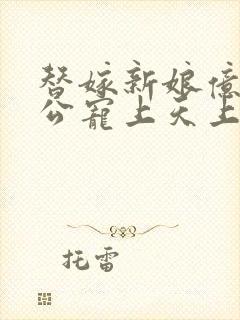 替嫁新娘亿
公宠上天上
托雷